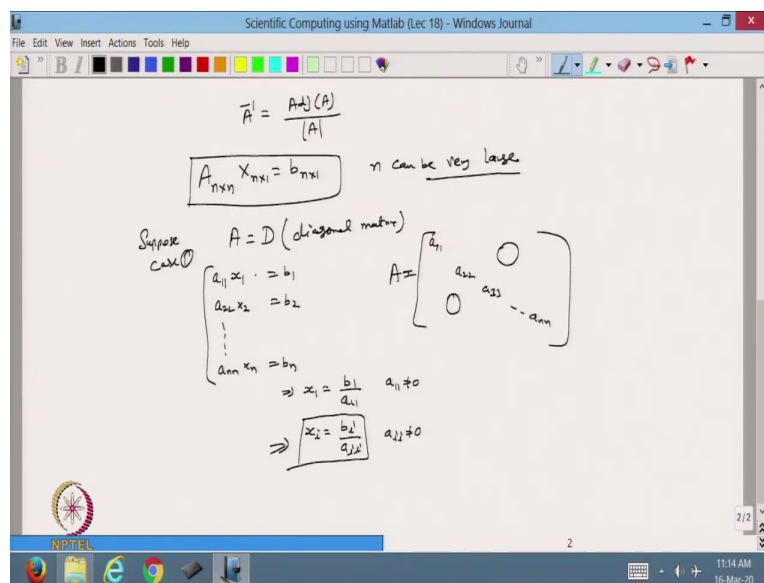 Scientific Computing using Matlab (Lec 18) - Windows Journal
File Edit View Insert Actions Tools Help
A⁻¹ = Adj(A) / |A|
A_{n×n} X_{n×1} = b_{n×1} n can be very large
Suppose A = D (diagonal matrix)
case ①
a₁₁ x₁ = b₁
a₂₂ x₂ = b₂
a_{nn} x_n = b_n
A = [ a₁₁ a₂₂ a₃₃ ... a_{nn} ] O O
⇒ x₁ = b₁ / a₁₁ a₁₁ ≠ 0
⇒ x_i = b_i / a_{ii} a_{ii} ≠ 0
NPTEL
2
2/2
11:14 AM
16-Mar-20